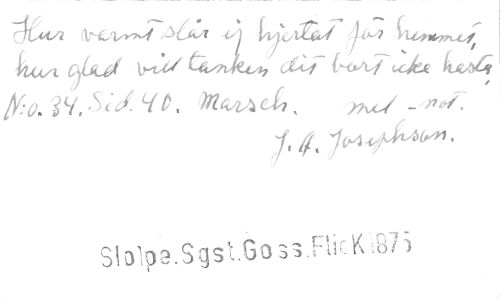 Hur varmt slår ej hjertat för hemmet,
hur glad vill tanken dit bort icke hasta,
N:o. 34. Sid. 40. Marsch. mel-not.
J. A. Josephson.
Slolpe.Sgst.Goss.Flick 1875